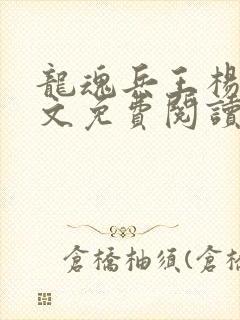 龍魂兵王楊
文免費閱讀
倉橋柚須(倉橋